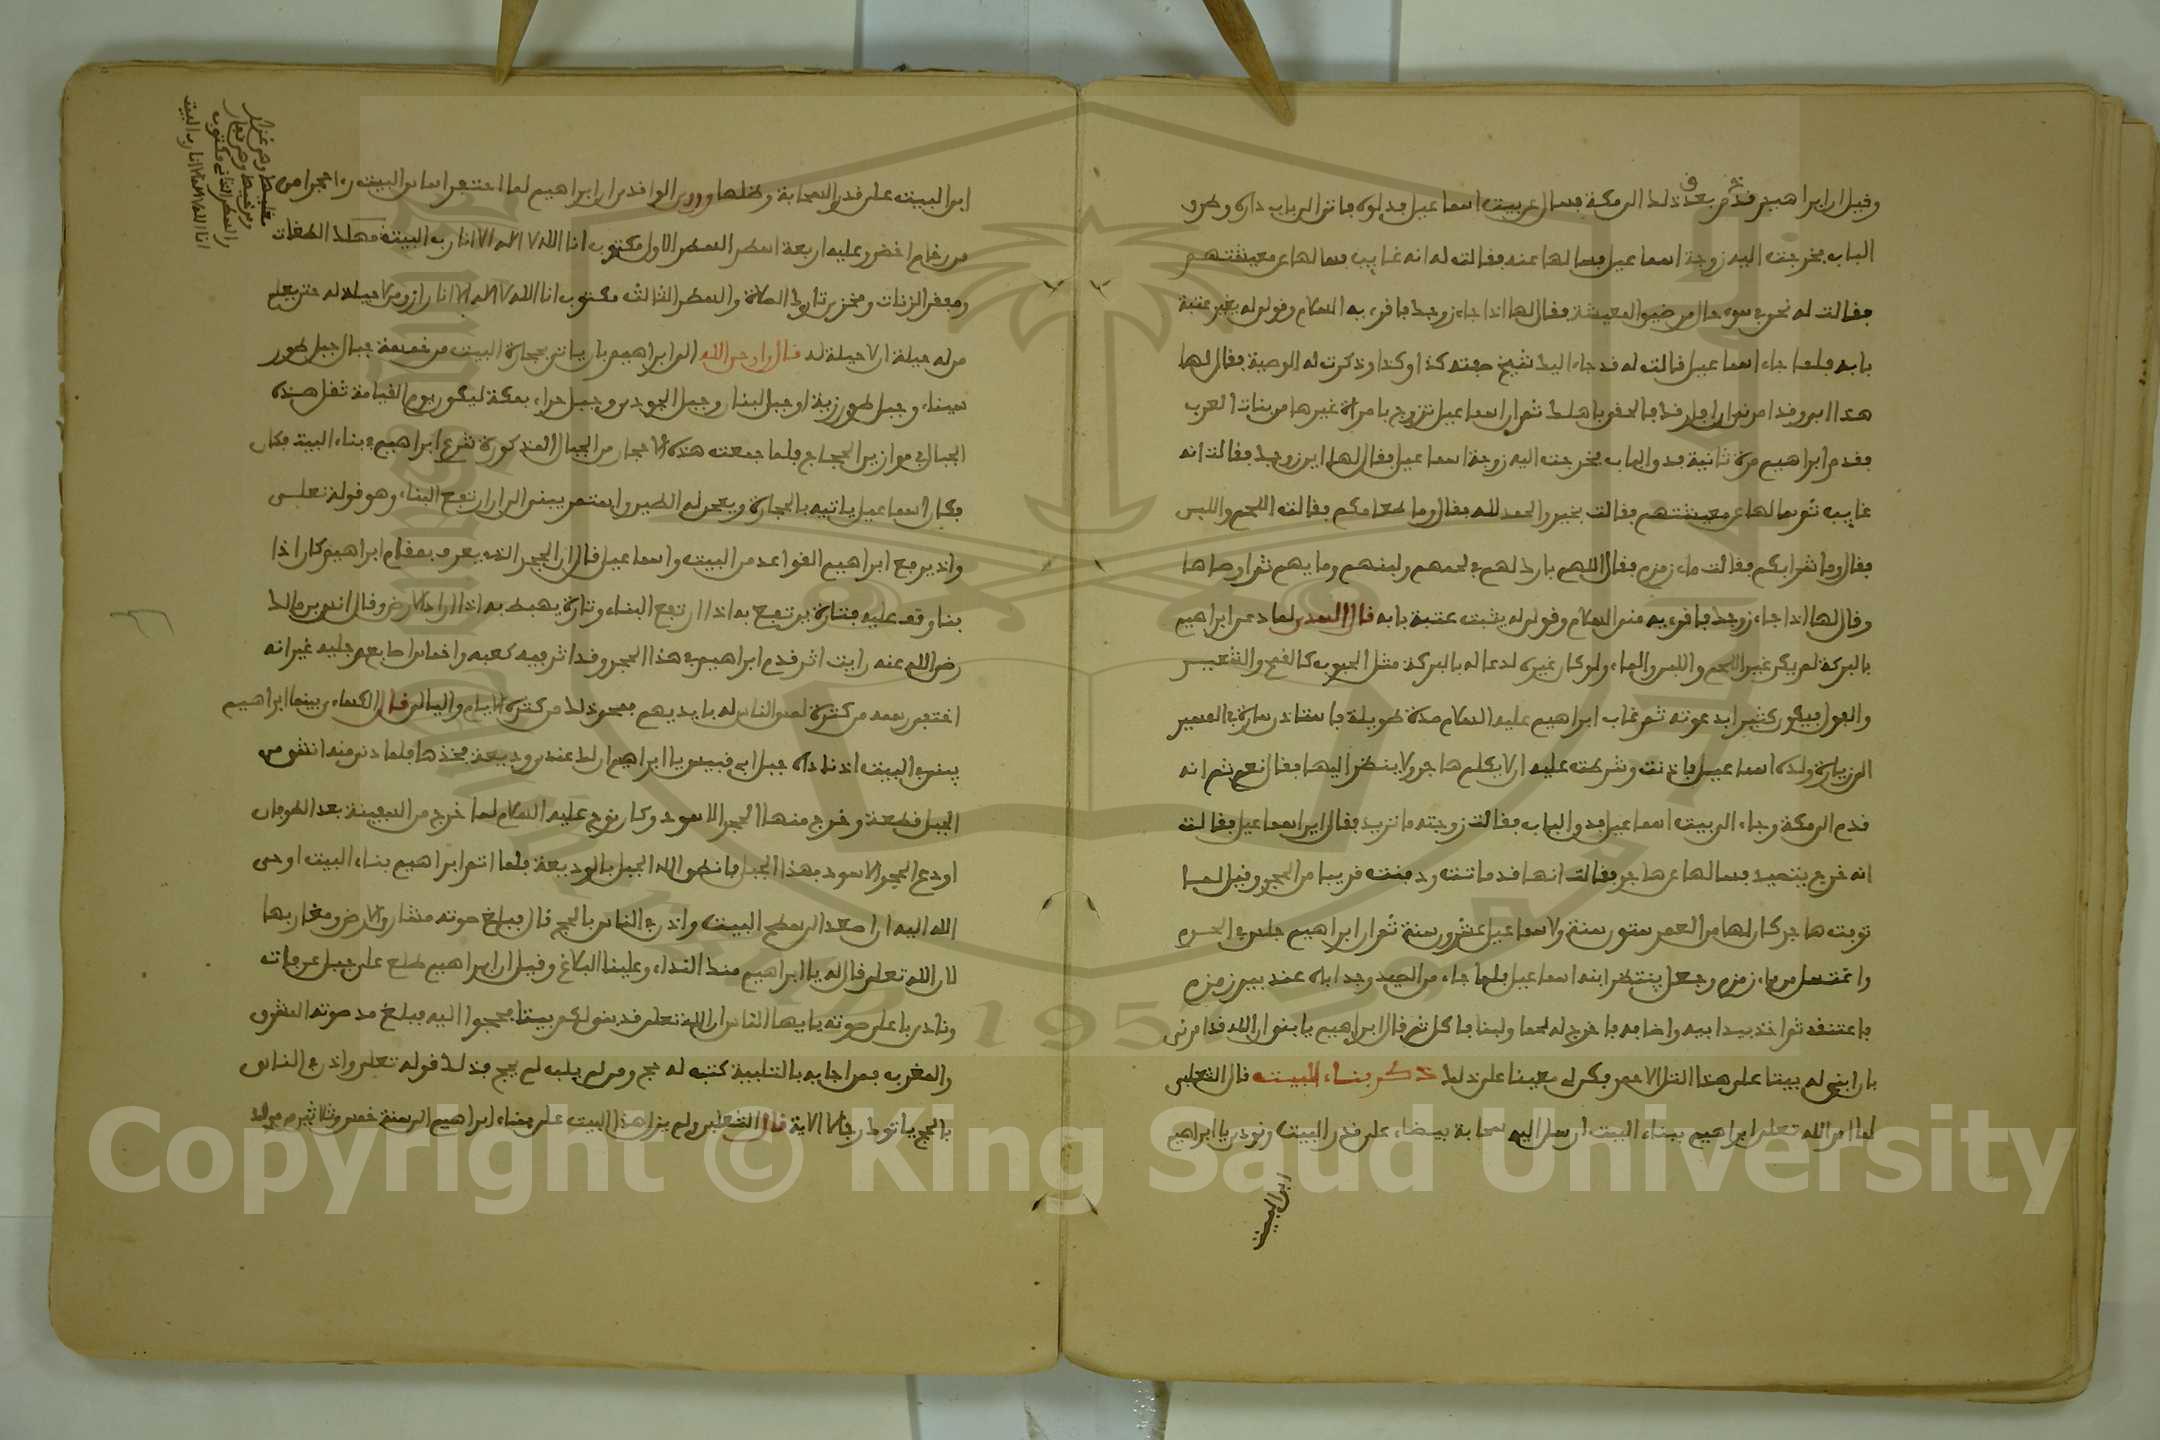 وقيل ان ابراهيم قدم بعد ذلك الى مكة فسال عن بيت اسماعيل فدلوه فاتى الى باب داره وطرق
الباب فخرجت اليه زوجة اسماعيل فسالها عنه فقالت له انه غايب فسالها عن معيشتهم
فقالت له نحن في سوء حال من ضيق المعيشة فقال لها اذا جاء زوجك فاقريه السلام وقولي له يغير عتبة
بابه فلما جاء اسماعيل قالت له قد جاء اليك شيخ صفته كذا وكذا وذكرت له الوصية فقال لها
هذا ابي وقد امرني ان افارقك فالحقي باهلك ثم ان اسماعيل تزوج بامراة غيرها من بنات العرب
فقدم ابراهيم مرة ثانية فدق الباب فخرجت اليه زوجة اسماعيل فقال لها اين زوجك فقالت انه
غايب ثم سالها عن معيشتهم فقالت بخير والحمد لله فقال وما طعامكم فقالت اللحم واللبن
فقال وما شرابكم فقالت ماء زمزم فقال اللهم بارك لهم في لحمهم ولبنهم ومايهم ثم اوصاها
وقال لها اذا جاء زوجك فاقريه مني السلام وقولي له يثبت عتبة بابه قال السدي لما دعى ابراهيم
بالبركة لم يكن غير اللحم واللبن والماء ولو كان غيره لدعا له بالبركة مثل الحبوب كالقمح والشعير
والفول فيكون كثيرا بدعوته ثم غاب ابراهيم عليه السلام مدة طويلة فاستاذن سارة في المسير
الى زيارة ولده اسماعيل فاذنت وشرطت عليه ان لا يكلم هاجر ولا ينظر اليها فقال نعم ثم انه
قدم الى مكة وجاء الى بيت اسماعيل فدق الباب فقالت زوجته ما تريد فقال اين اسماعيل فقالت
انه خرج يتصيد فسالها عن هاجر فقالت انها قد ماتت ودفنت قريبا من الحجر وقيل لما
توفت هاجر كان لها من العمر ستون سنة ولاسماعيل عشرون سنة ثم ان ابراهيم جلس في الحرم
واغتسل من ماء زمزم وجعل ينتظر ابنه اسماعيل فلما جاء من الصيد وجد اباه عند بير زمزم
فاعتنقه ثم اخذ بيد ابيه واضافه فاخرج له لحما ولبنا فاكل ثم قال ابراهيم يا بني ان الله قد امرني
بان ابني له بيتا على هذا التل الاحمر فكن لي معينا على ذلك ذكر بناء البيت قال الثعلبي
لما امر الله تعلى ابراهيم ببناء البيت ارسل اليه سحابة بيضاء على قدر البيت ونودي يا ابراهيم
ابن البيت
ابن البيت على قدر السحابة وظلها وروى الواقدي ان ابراهيم لما احتفر اساس البيت راء حجرا من
من رخام اخضر عليه اربعة اسطر السطر الاول مكتوب انا الله لا اله الا انا رب البيت مهلك الطغات
ومفقر الزنات ومخزي تارك الصلاة والسطر الثالث مكتوب انا الله لا اله الا انا رازق من لا حيلة له حتى يعلم
من له حيلة ان لا حيلة له قال واوحى الله الى ابراهيم بان ياتي بحجارة البيت من خمسة جبال جبل طور
سيناء وجبل طور زيتا وجبل لبنان وجبل الجودي وجبل حراء بمكة ليكون يوم القيامة ثقل هذه
الجبال في موازين الحجاج فلما جمعت هذه الاحجار من الجبال المذكورة شرع ابراهيم في بناء البيت فكان
فكان اسماعيل ياتيه بالحجارة ويعجن له الطين واستمر يبني الى ان ارتفع البناء وهو قوله تعلى
واذ يرفع ابراهيم القواعد من البيت واسماعيل قال ان الحجر الذي يعرف بمقام ابراهيم كان اذا
بنا وقف عليه فتارة يرتفع به اذا ارتفع البناء وتارة يهبط به اذا اراد الارض وقال انس بن مالك
رضي الله عنه رايت اثر قدم ابراهيم في هذا الحجر وقد اثر فيه كعبه واخماس اصابع رجليه غير انه
اختفى رسمه من كثرة لمس الناس له بايديهم فمحى ذلك من كثرة الايام واليالي قال الكساءي بينما ابراهيم
يبني البيت اذ ناداه جبل ابي قبيس يا ابراهيم ان لك عندي وديعة فخذها فلما دنى منه انشق من
الجبل قطعة وخرج منها الحجر الاسود وكان نوح عليه السلام لما خرج من السفينة بعد الطوفان
اودع الحجر الاسود بهذا الجبل فانطق الله الجبل بالوديعة فلما اتم ابراهيم بناء البيت اوحى
الله اليه ان اصعد الى سطح البيت واذن في الناس بالحج قال فبلغ صوته مشارق الارض ومغاربها
لان الله تعلى قال له يا ابراهيم منك النداء وعلينا البلاغ وقيل ان ابراهيم طلع على جبل عرفات
ونادى باعلى صوته يايها الناس ان الله تعلى قد بنى لكم بيتا فحجوا اليه فبلغ مد صوته المشرق
والمغرب فمن اجابه بالتلبية كتب له حج ومن لم يلب لم يحج فذلك قوله تعلى واذن في الناس
بالحج ياتوك رجالا الاية قال الثعلبي ولم يزل هذا البيت على بناء ابراهيم الى سنة خمس وثلاثين من مولد
والسطر الثاني مكتوب
انا الله لا اله الا انا رب البيت